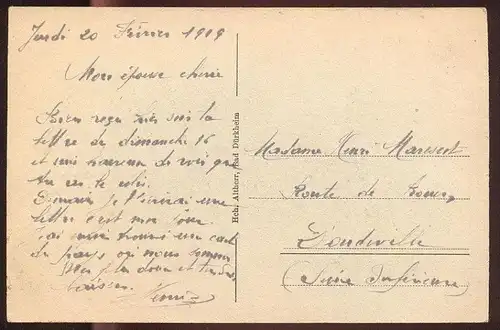 Jeudi 20 Février 1919
Mon épouse chérie
Bien reçu hier soir la
lettre du dimanche 16
et suis heureux de voir que
tu as le colis.
Demain je t'écrirai une
lettre c'est mon jour.
J'ai aussi trouvé une carte
du pays où nous sommes
Mes plus doux et tendres
baisers.
Henri
Hch. Altherr, Bad Dürkheim
Madame Henri
Route de
Doudeville
(Seine Inférieure)